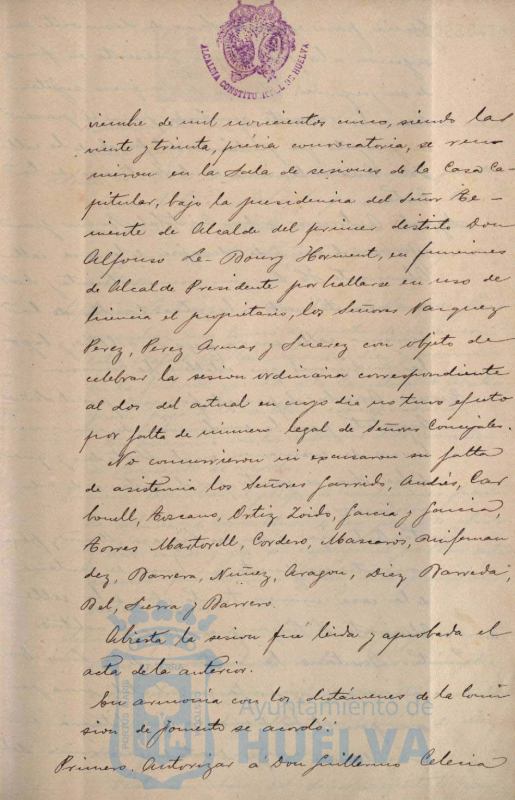 ALCALDIA CONSTITUCIONAL DE HUELVA
viembre de mil novecientos cinco, siendo las
veinte y treinta, prévia convocatoria, se reu-
nieron en la Sala de sesiones de la Casa Ca-
pitular, bajo la presidencia del Señor Te-
niente de Alcalde del primer distrito Don
Alfonso Le-Bourg Horment, en funciones
de Alcalde Presidente por hallarse en uso de
licencia el propietario, los Señores Vazquez
Perez, Perez Armas y Suarez con objeto de
celebrar la sesion ordinaria correspondiente
al dos del actual en cuyo dia no tuvo efecto
por falta de número legal de Señores Concejales.
No concurrieron ni excusaron su falta
de asistencia los Señores Garrido, Andrés, Car
bonell, Toscano, Ortiz Zoido, Garcia y Garcia,
Torres Martorell, Cordero, Mascarós,
dez, Barrera, Nuñez, Aragon, Diaz Barreda,
Bel, Sierra y Barrero.
Abierta la sesion fué leida y aprobada el
acta de la anterior.
En armonia con los dictámenes de la Comi
sion de fomento se acordó:
Primero. Autorizar á Don Guillermo Celecia
Ayuntamiento de
HUELVA